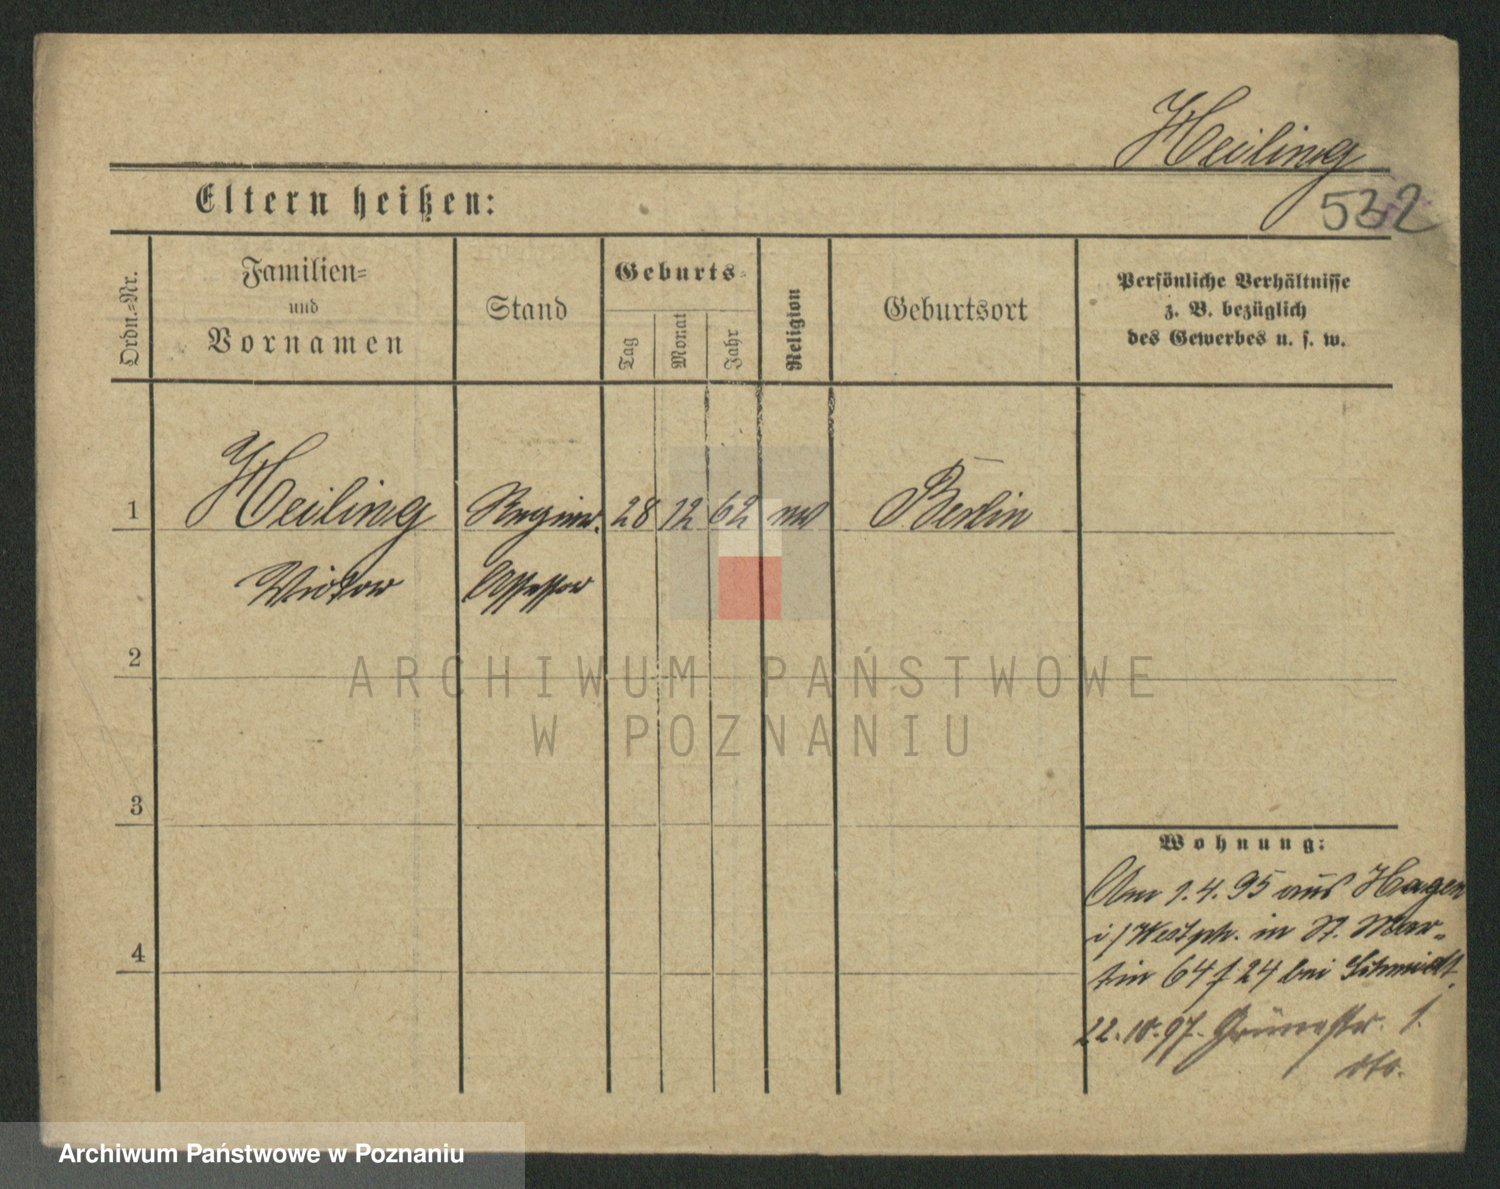 Heiling
Eltern heißen:
532
Ordn.-Nr.
Familien-
und
Vornamen
Stand
Geburts-
Tag
Monat
Jahr
Religion
Geburtsort
Persönliche Verhältnisse
z. B. bezüglich
des Gewerbes u. s. w.
1
Heiling
Regier.
28
12
62
ev
Berlin
Victor
Assessor
2
ARCHIWUM PAŃSTWOWE
W POZNANIU
3
Wohnung:
Am 1.4.95 aus Hagen
i/Westph. in St. Mar-
tin 64 24 bei Schmidt.
4
22.10.97. Grünestr. 1.
dto.
Archiwum Państwowe w Poznaniu